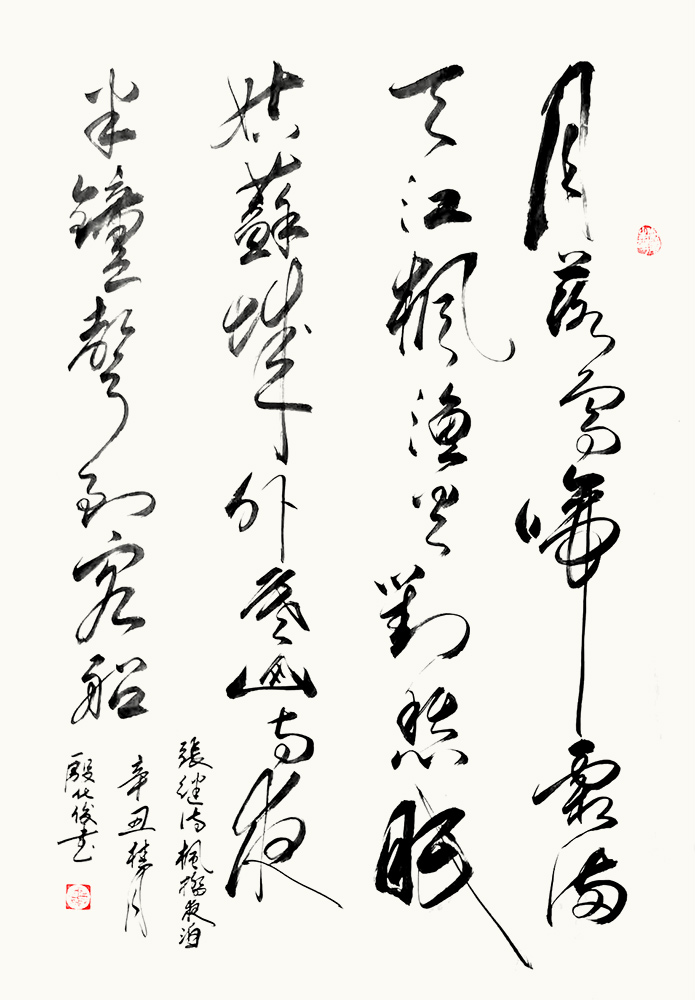 月落烏啼霜滿
天江楓漁火對愁眠
姑蘇城外寒山寺夜
半鐘聲到客船
張继诗楓橋夜泊
辛丑月
殷化俊书